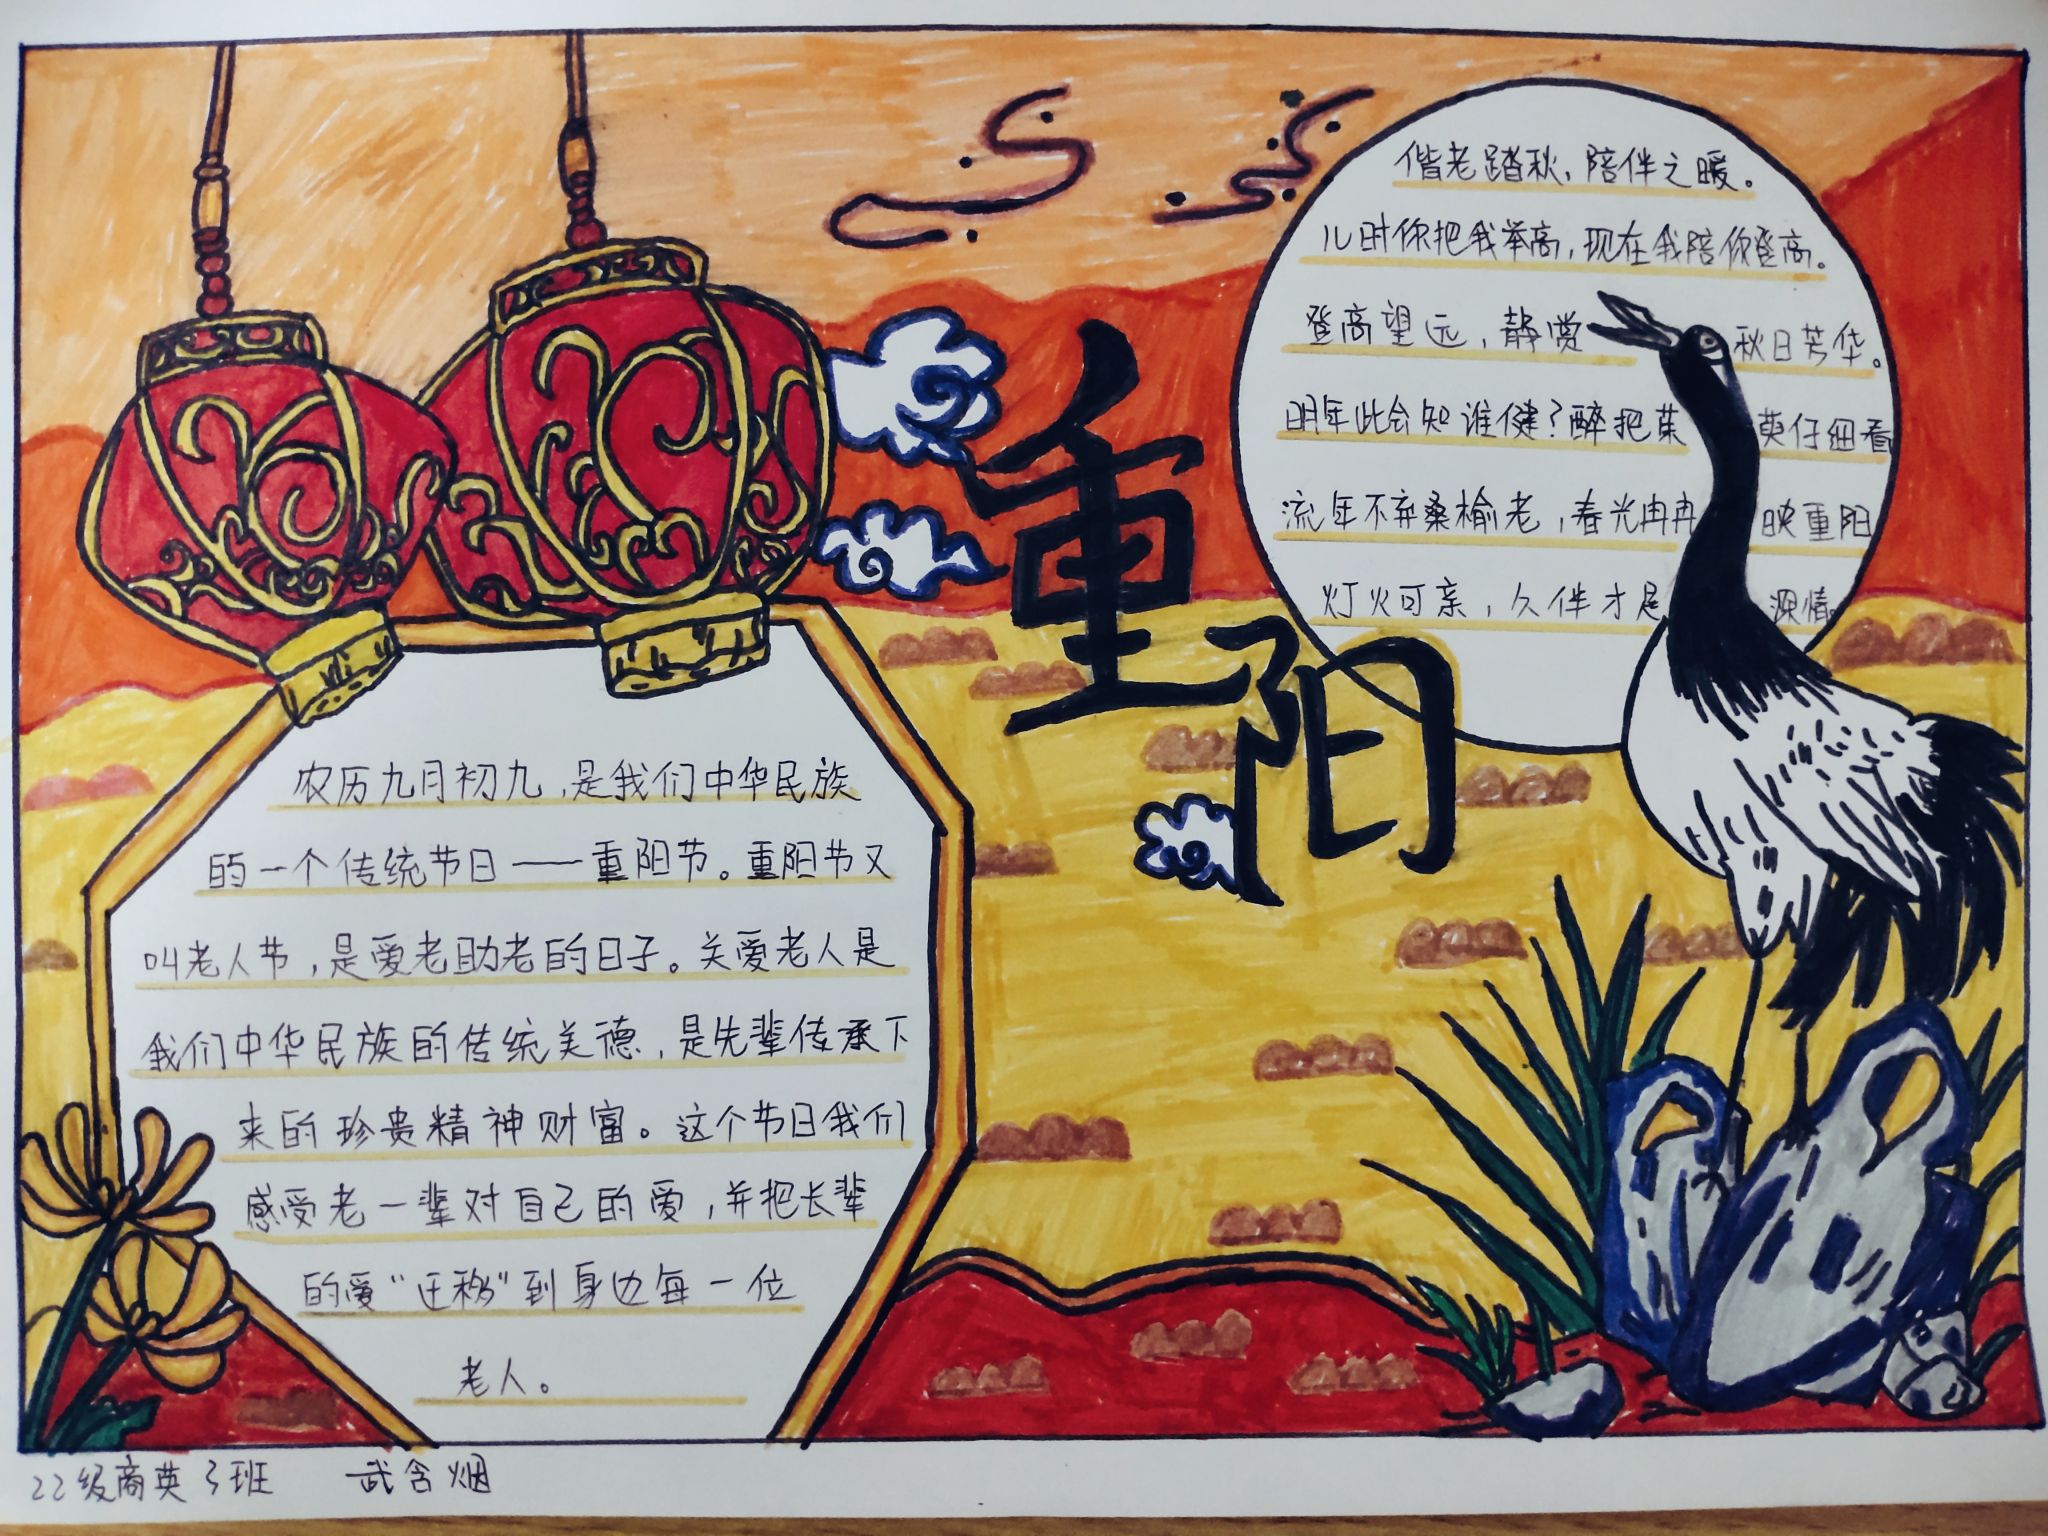 重阳
偕老踏秋，陪伴之暖。
儿时你把我举高，现在我陪你登高。
登高望远，静赏秋日芳华。
明年此会知谁健？醉把茱萸仔细看
流年不弃桑榆老，春光冉冉映重阳
灯火可亲，久伴才是深情。
农历九月初九，是我们中华民族
的一个传统节日——重阳节。重阳节又
叫老人节，是爱老助老的日子。关爱老人是
我们中华民族的传统美德，是先辈传承下
来的珍贵精神财富。这个节日我们
感受老一辈对自己的爱，并把长辈
的爱“迁移”到身边每一位
老人。
22级商英3班 武含烟